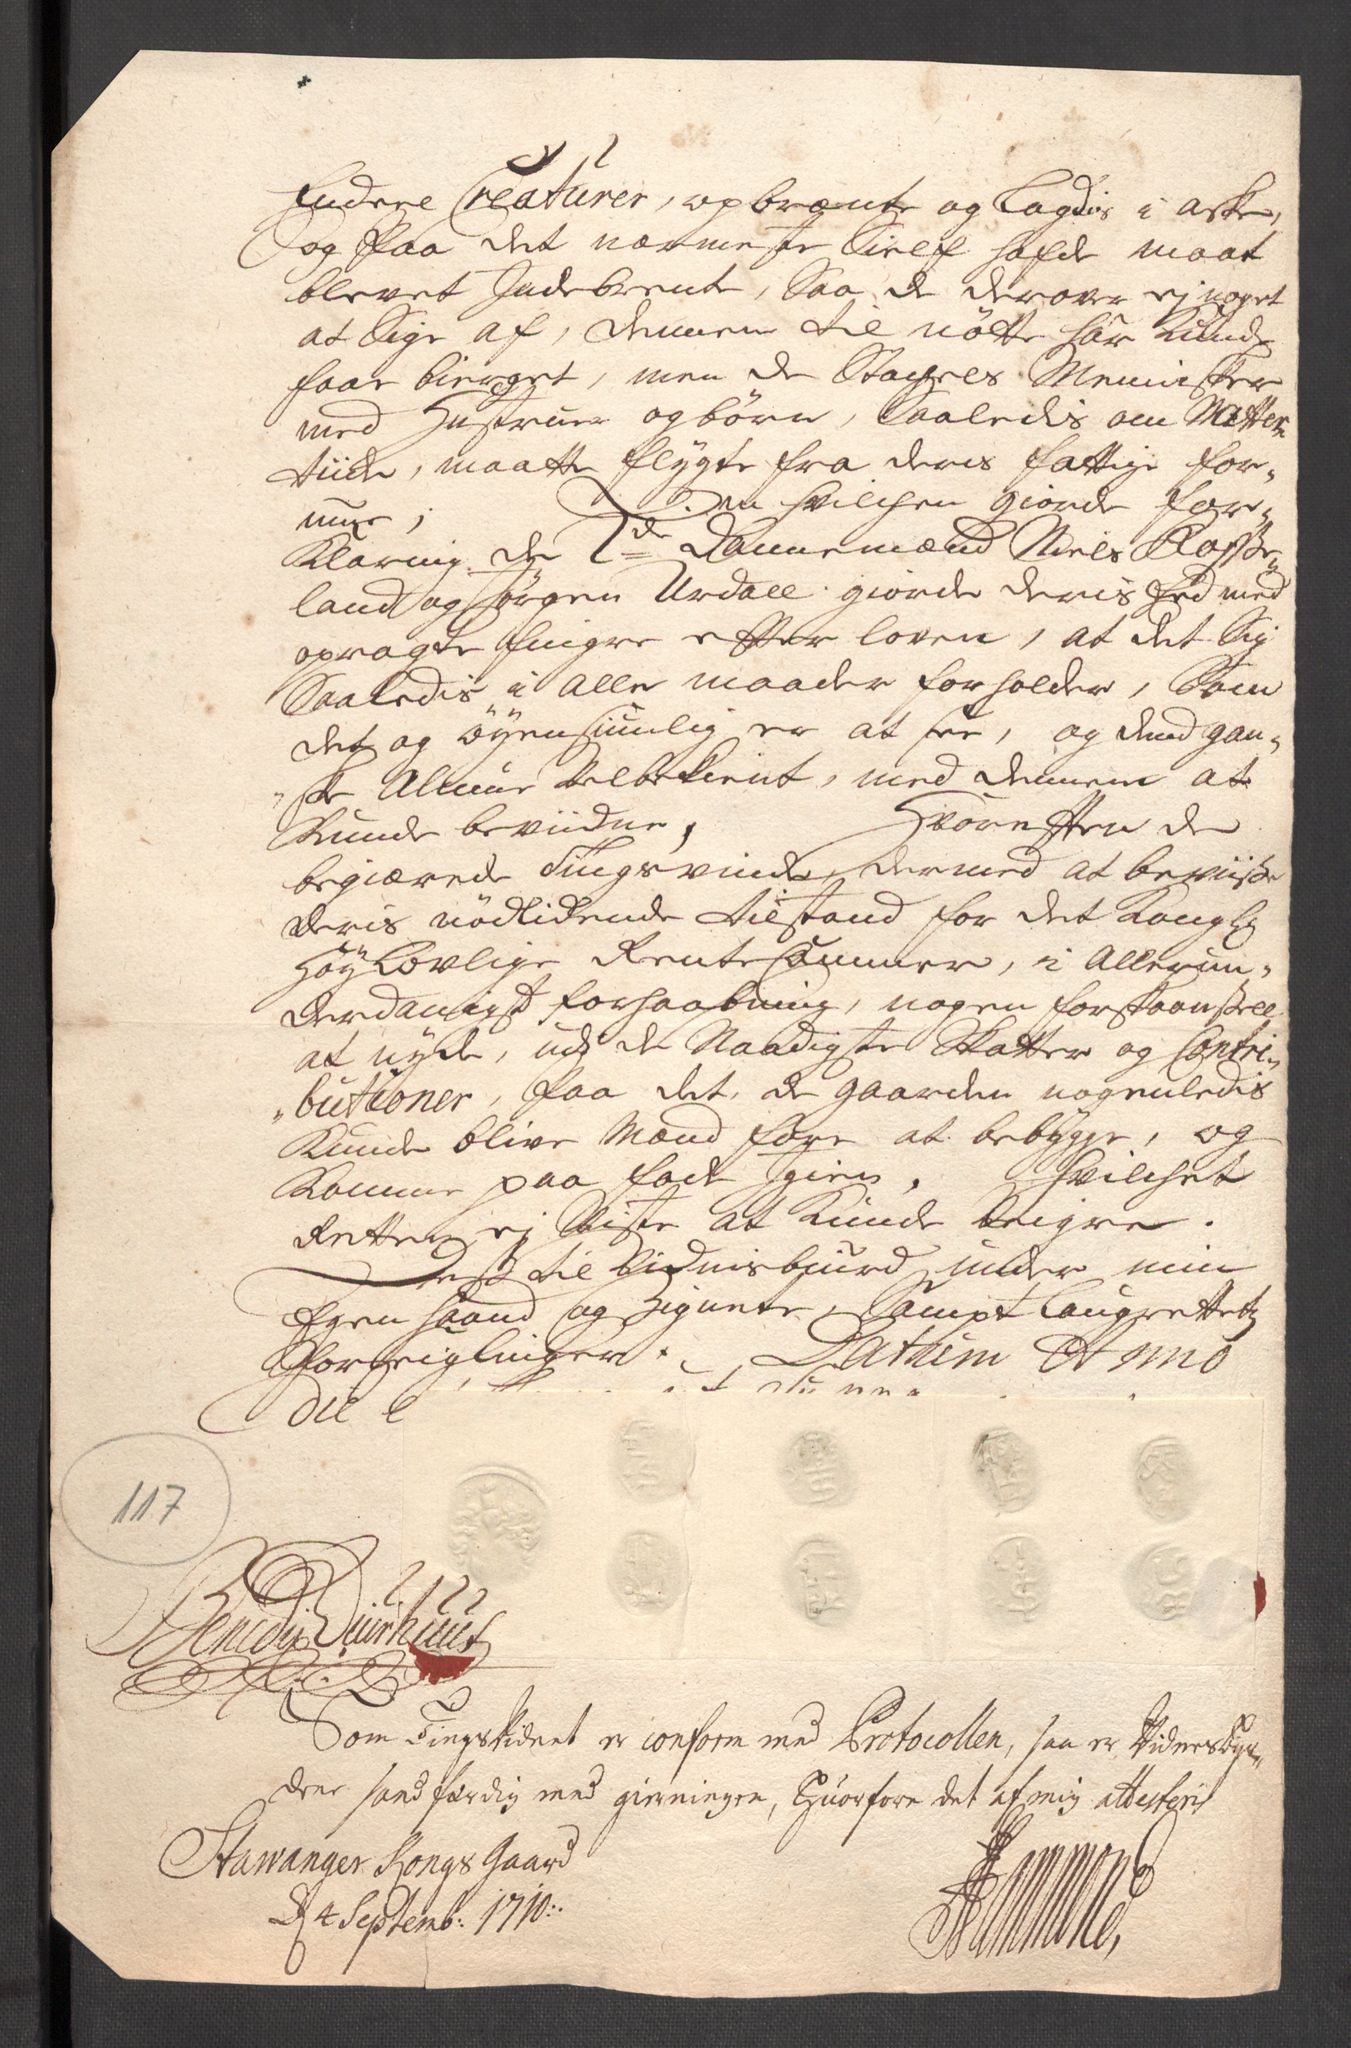 andre Creaturer, opbrænte og lagdis i aske,
og paa det nærmeste Sielf hafde maat
blevet Indebrent, Saa de derover ej noget
at Sige af, dennem til nötte har kunde
faae bierget, men de Stackels Mennisker
med Hustruer og börn, Saaledis om Natter
tiide, maatte flygte fra deris fattige for-
mue; Om hvilchen giorde for-
klaring de 2de Dannemænd Niels
land og Jörgen Urdall giorde deris Eed med
opragte fingre efter loven, at det Sig
Saaledis i alle maader forholder, Som
det og öyensiunlig er at see, og dend gan-
ske Almue velbekient, med dennem at
kunde beviidne, Hvorefter de
begiærede Tingsvinde, dermed at beviise
deris nödlidende tilstand for det Kongl:
Höylovlige RenteCammer, i Allerun-
derdanigst forhaabning, nogen forskaansell
at nyde, udi de Naadigste Skatter og Contri-
butioner, paa det, de gaarden nogenledis
kunde blive Mænd fore at bebygge, og
komme paa fode igien. Hvilchet
Retten ej viste at kunde veigre.
Dess til Vidnisbiurd under min
Egen haand og Signete, Sampt laugrettetz
forseiglinger. Datum Anno
Die
117
Benedix Duirhuus
Som Tingsvidnet er conform med Protocollen, saa er Vidnesbyr-
dene sandfærdig med gierningen, Huorfore det af mig attesteris
Stawanger Kongs Gaard
D 4 Septemb: 1710:
Hammond,